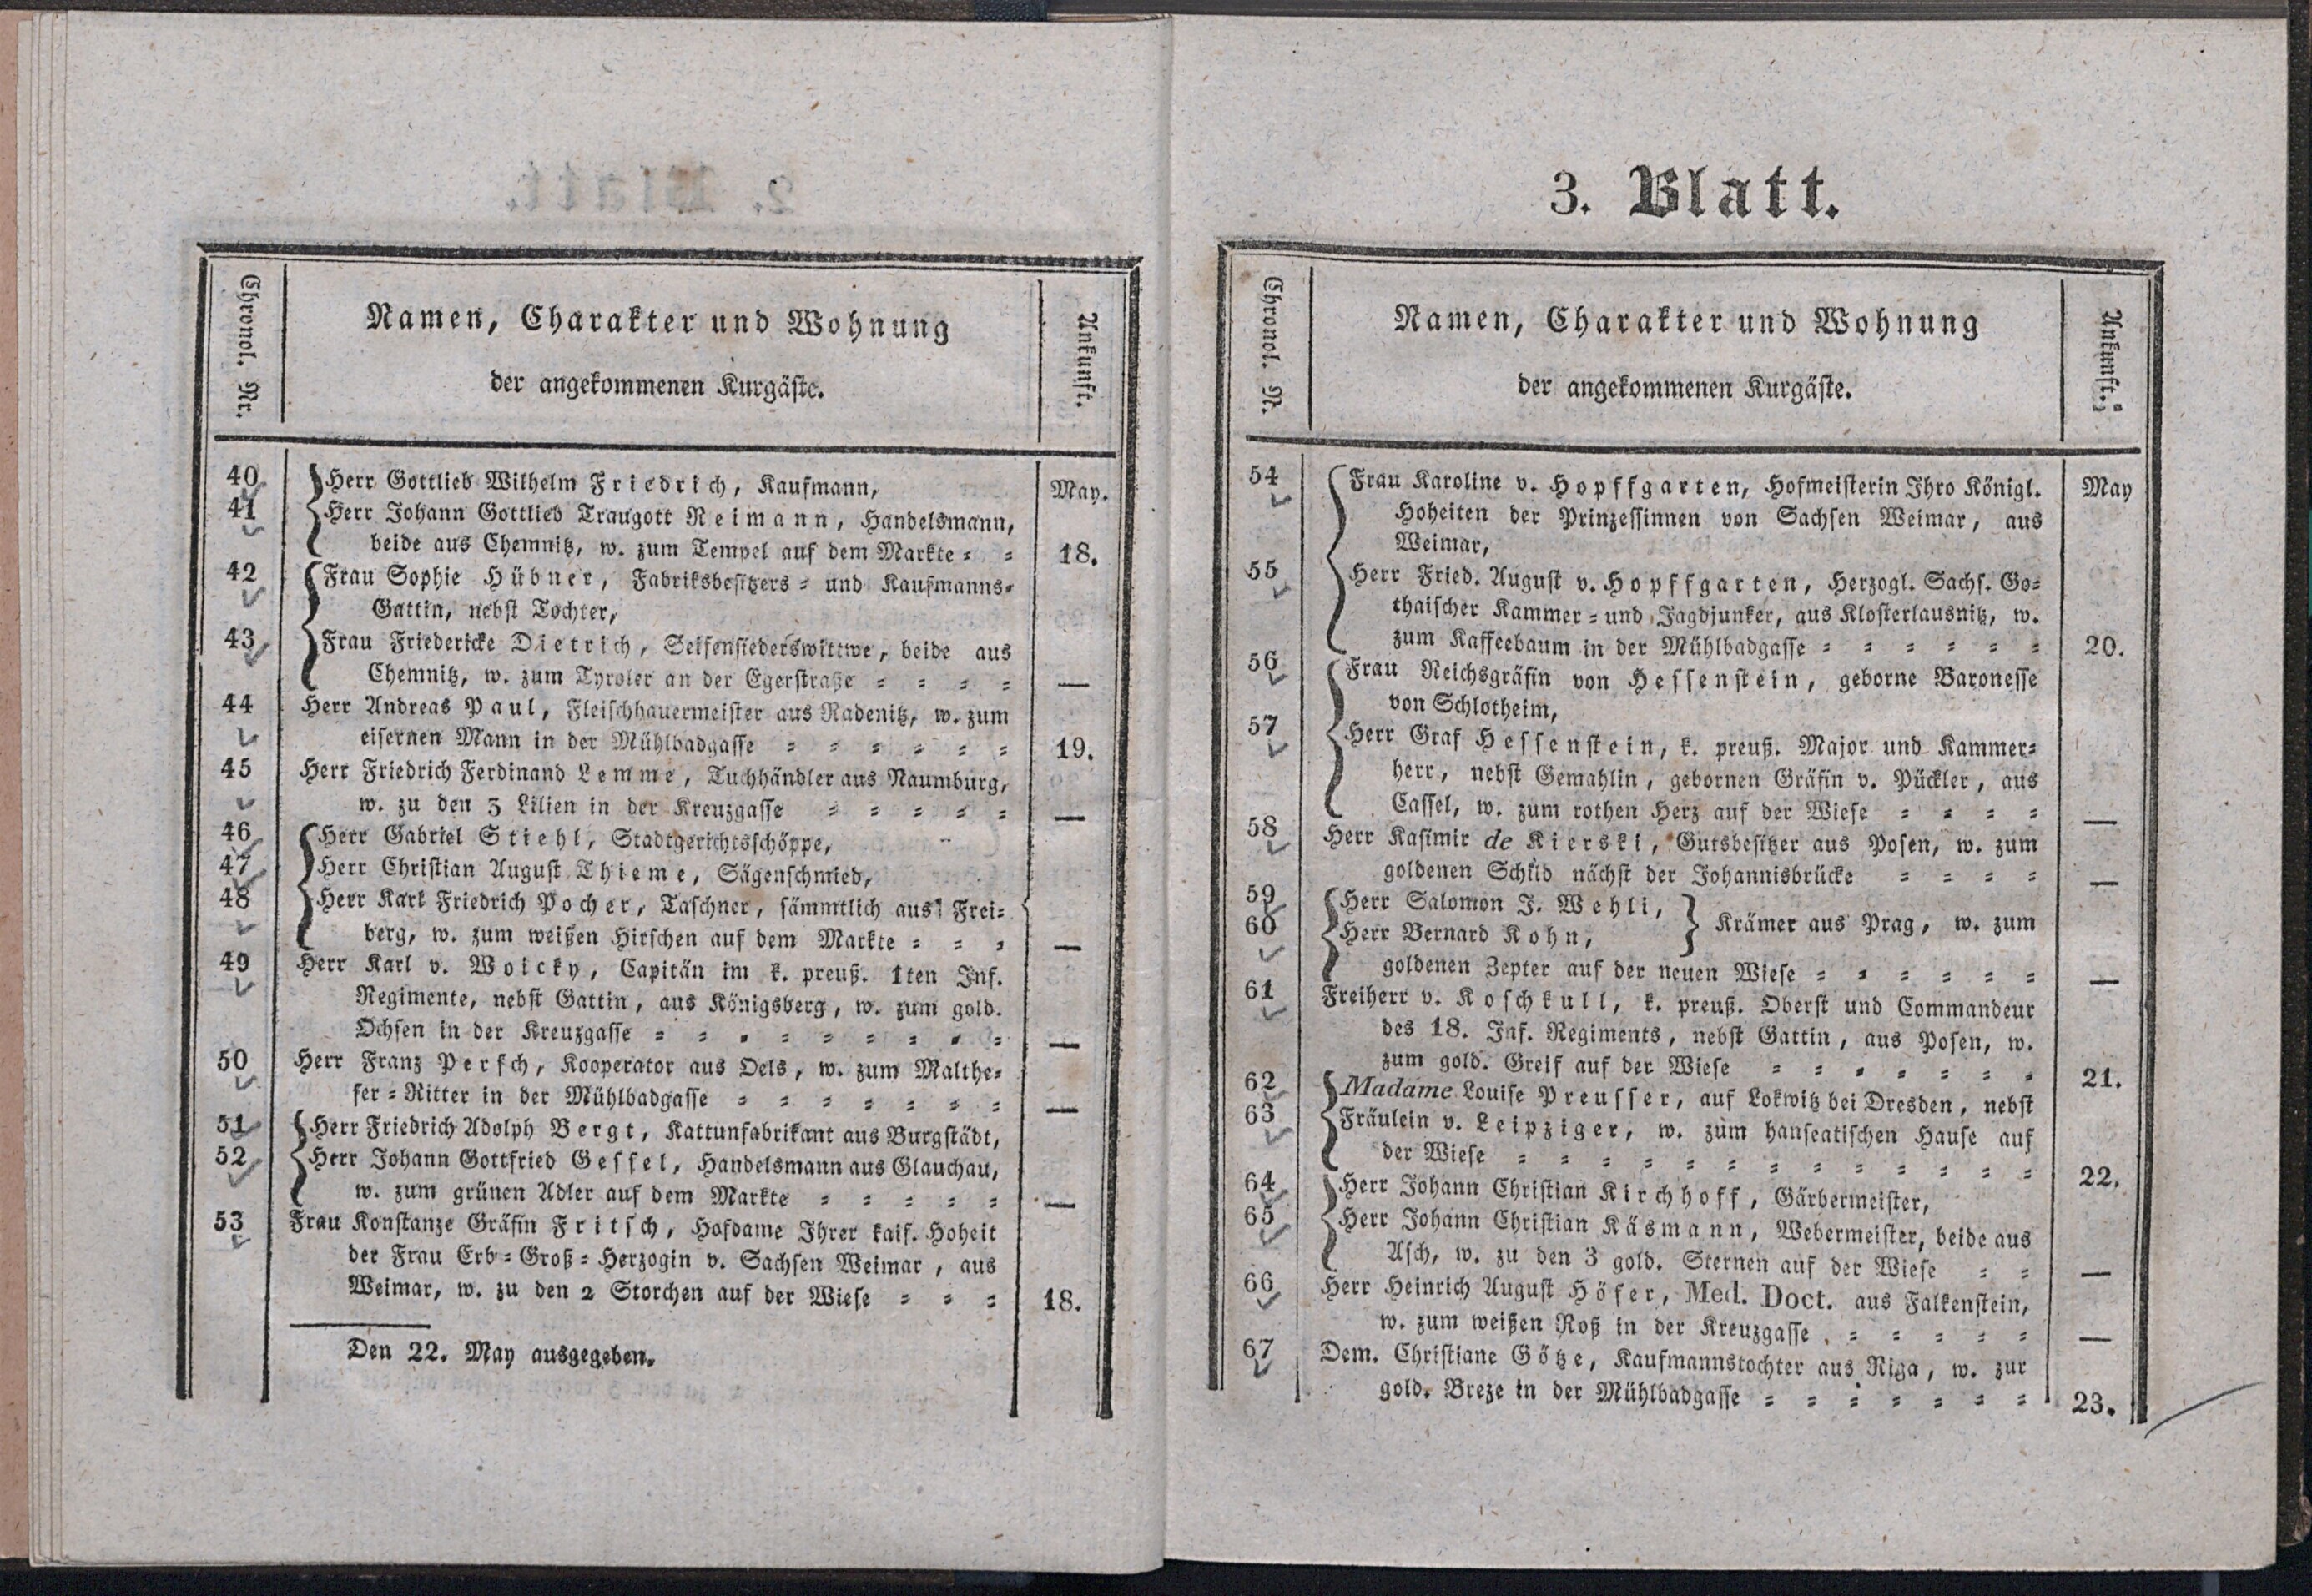 Chronol. Nr.
Namen, Charakter und Wohnung
der angekommenen Kurgäste.
Ankunft.
40 Herr Gottlieb Wilhelm Friedrich, Kaufmann, May.
41 Herr Johann Gottlieb Traugott Reimann, Handelsmann,
beide aus Chemnitz, w. zum Tempel auf dem Markte = = 18.
42 Frau Sophie Hübner, Fabriksbesitzers = und Kaufmanns=
Gattin, nebst Tochter,
43 Frau Friedericke Dietrich, Seifensiederswittwe, beide aus
Chemnitz, w. zum Tyroler an der Egerstraße = = = = —
44 Herr Andreas Paul, Fleischhauermeister aus Radenitz, w. zum
eisernen Mann in der Mühlbadgasse = = = = = = 19.
45 Herr Friedrich Ferdinand Lemme, Tuchhändler aus Naumburg,
w. zu den 3 Lilien in der Kreuzgasse = = = = = —
46 Herr Gabriel Stiehl, Stadtgerichtsschöppe,
47 Herr Christian August Thieme, Sägenschmied,
48 Herr Karl Friedrich Pocher, Taschner, sämmtlich aus Frei=
berg, w. zum weißen Hirschen auf dem Markte = = = —
49 Herr Karl v. Woicky, Capitän im k. preuß. 1ten Inf.
Regimente, nebst Gattin, aus Königsberg, w. zum gold.
Ochsen in der Kreuzgasse = = = = = = = = = —
50 Herr Franz Persch, Kooperator aus Oels, w. zum Malthe=
ser = Ritter in der Mühlbadgasse = = = = = = = —
51 Herr Friedrich Adolph Bergt, Kattunfabrikant aus Burgstädt,
52 Herr Johann Gottfried Gessel, Handelsmann aus Glauchau,
w. zum grünen Adler auf dem Markte = = = = = —
53 Frau Konstanze Gräfin Fritsch, Hofdame Ihrer kais. Hoheit
der Frau Erb = Groß = Herzogin v. Sachsen Weimar, aus
Weimar, w. zu den 2 Storchen auf der Wiese = = = 18.
Den 22. May ausgegeben.
3. Blatt.
Chronol. N.
Namen, Charakter und Wohnung
der angekommenen Kurgäste.
Ankunft.
54 Frau Karoline v. Hopffgarten, Hofmeisterin Ihro Königl. May
Hoheiten der Prinzessinnen von Sachsen Weimar, aus
Weimar,
55 Herr Fried. August v. Hopffgarten, Herzogl. Sachs. Go=
thaischer Kammer = und Jagdjunker, aus Klosterlausnitz, w.
zum Kaffeebaum in der Mühlbadgasse = = = = = = 20.
56 Frau Reichsgräfin von Hessenstein, geborne Baronesse
von Schlotheim,
57 Herr Graf Hessenstein, k. preuß. Major und Kammer=
herr, nebst Gemahlin, gebornen Gräfin v. Pückler, aus
Cassel, w. zum rothen Herz auf der Wiese = = = = —
58 Herr Kasimir de Kierski, Gutsbesitzer aus Posen, w. zum
goldenen Schild nächst der Johannisbrücke = = = = —
59 Herr Salomon J. Wehli,
60 Herr Bernard Kohn, Krämer aus Prag, w. zum
goldenen Zepter auf der neuen Wiese = = = = = = —
61 Freiherr v. Koschkull, k. preuß. Oberst und Commandeur
des 18. Inf. Regiments, nebst Gattin, aus Posen, w.
zum gold. Greif auf der Wiese = = = = = = = 21.
62 Madame Louise Preusser, auf Lokwitz bei Dresden, nebst
63 Fräulein v. Leipziger, w. zum hanseatischen Hause auf
der Wiese = = = = = = = = = = = = = 22.
64 Herr Johann Christian Kirchhoff, Gärbermeister,
65 Herr Johann Christian Käsmann, Webermeister, beide aus
Asch, w. zu den 3 gold. Sternen auf der Wiese = = —
66 Herr Heinrich August Höfer, Med. Doct. aus Falkenstein,
w. zum weißen Roß in der Kreuzgasse = = = = = —
67 Dem. Christiane Götze, Kaufmannstochter aus Riga, w. zur
gold. Breze in der Mühlbadgasse = = = = = = = 23.